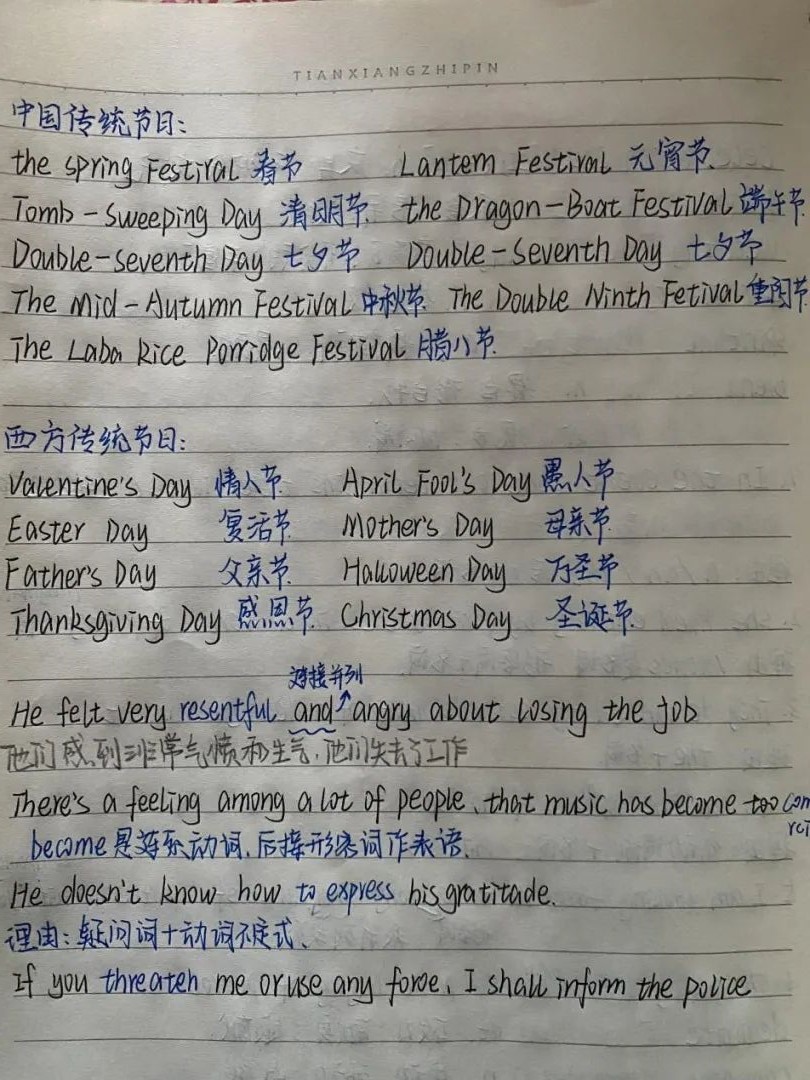 TIANXIANGZHIPIN
中国传统节日:
the Spring Festival 春节 Lantern Festival 元宵节
Tomb-Sweeping Day 清明节 the Dragon-Boat Festival 端午节
Double-Seventh Day 七夕节 Double-Seventh Day 七夕节
The Mid-Autumn Festival 中秋节 The Double Ninth Fetival 重阳节
The Laba Rice Porridge Festival 腊八节
西方传统节日:
Valentine's Day 情人节 April Fool's Day 愚人节
Easter Day 复活节 Mother's Day 母亲节
Father's Day 父亲节 Halloween Day 万圣节
Thanksgiving Day 感恩节 Christmas Day 圣诞节
连接并列
He felt very resentful and angry about losing the job
他们感到非常气愤和生气,他们失去了工作
There's a feeling among a lot of people, that music has become too
become是连系动词,后接形容词作表语.
He doesn't know how to express his gratitade.
理由:疑问词+动词不定式、
If you threaten me or use any force, I shall inform the police